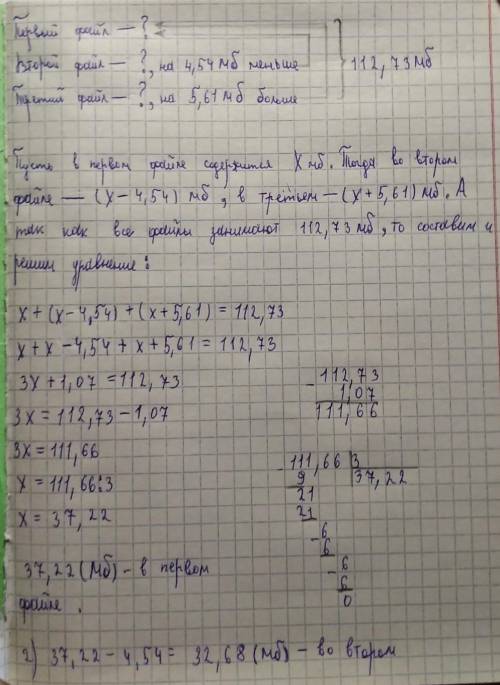 Первый файл — ?
Второй файл — ?, на 4,54 мб меньше
112,73 мб
Третий файл — ?, на 5,61 мб больше
Пусть в первом файле содержится X мб. Тогда во втором
файле — (x – 4,54) мб, в третьем – (x + 5,61) мб. А
так как все файлы занимают 112,73 мб, то составим и
решим уравнение:
x + (x – 4,54) + (x + 5,61) = 112,73
x + x – 4,54 + x + 5,61 = 112,73
3x + 1,07 = 112,73
3x = 112,73 – 1,07
3x = 111,66
x = 111,66:3
x = 37,22
– 112,73
1,07
111,66
– 111,66 | 3
9 37,22
21
21
– 6
6
– 6
6
0
37,22 (мб) – в первом
файле.
2) 37,22 – 4,54 = 32,68 (мб) – во втором